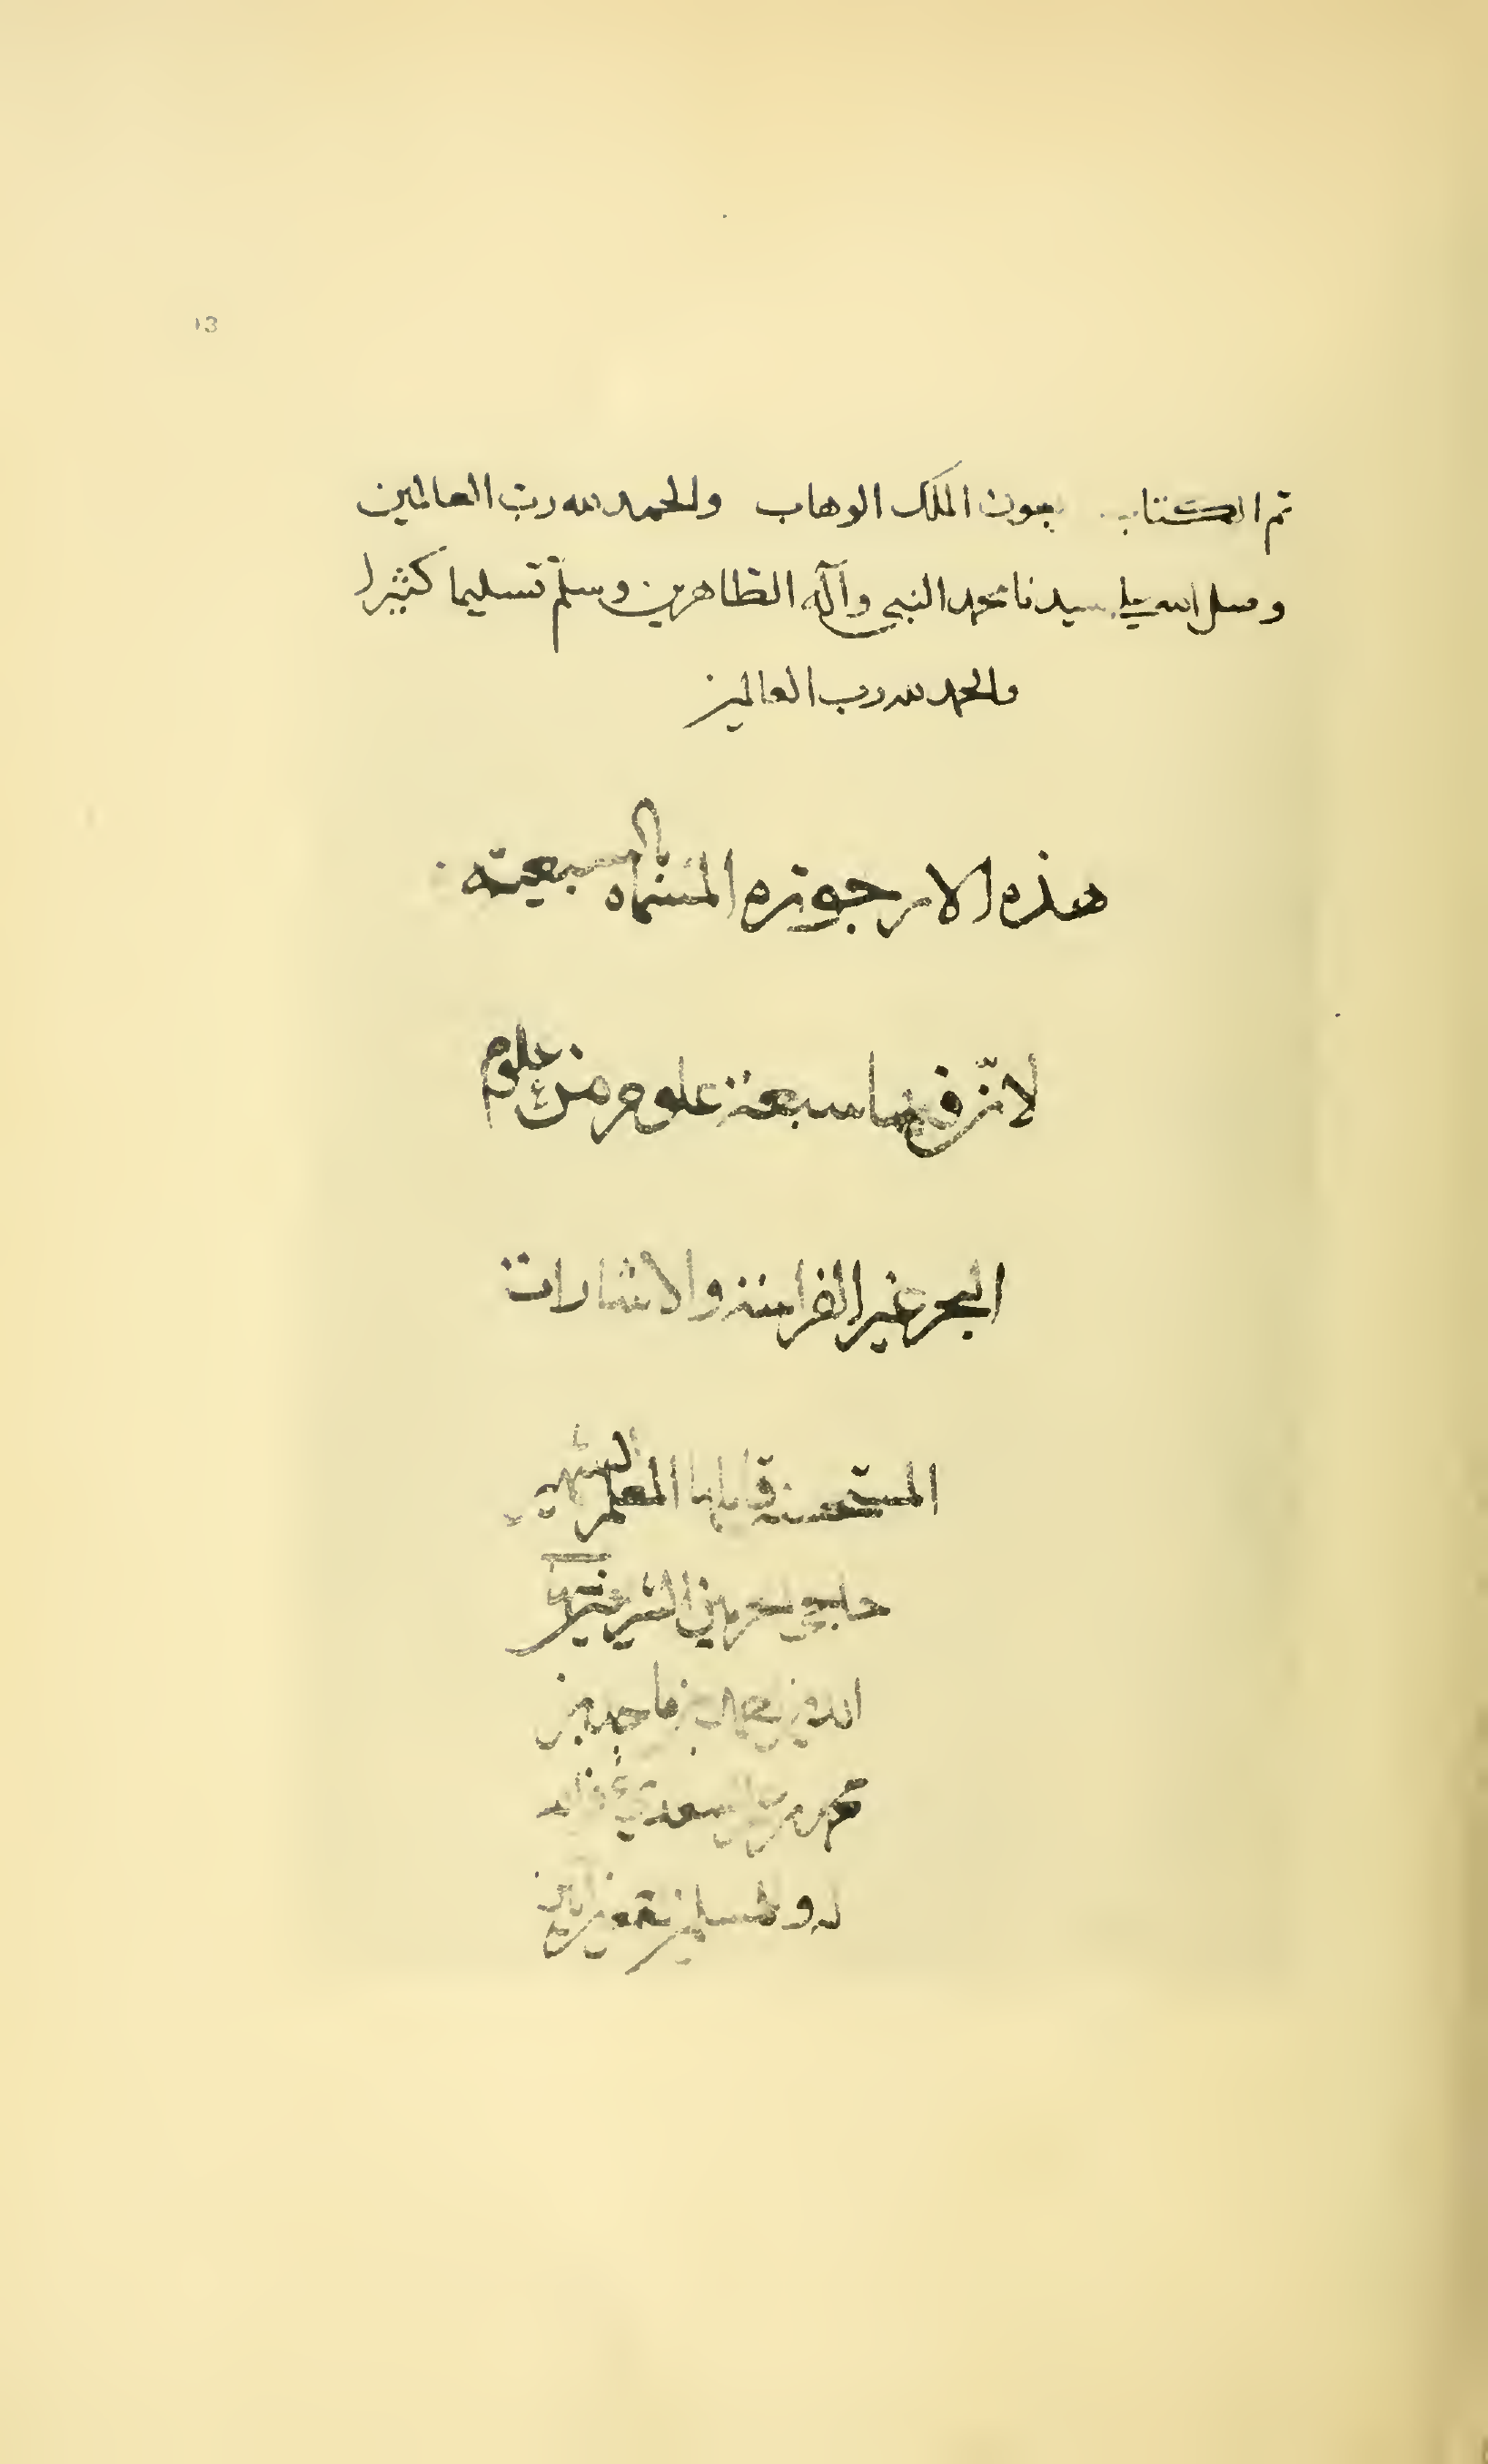 13
تم الكتاب بعون الملك الوهاب والحمد لله رب العالمين
وصلى الله على سيدنا محمد النبي وآله الطاهرين وسلّم تسليما كثيرا
والحمد لله رب العالمين
هذه الارجوزه المسماه بالسبعيته
لانّ فيها سبعة علوم من علوم
البحر غير الفراسة والاشارات
المستحسنة قايلها المعلم الشهير
حاجي الحرمين الشريفين
ماجد بن
محمد السعدي